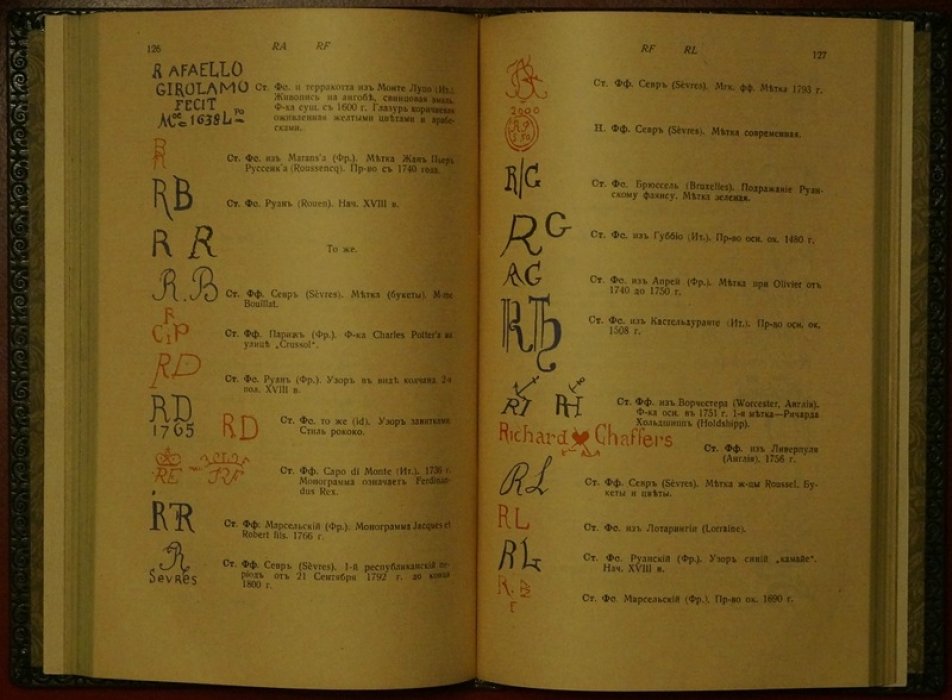 126 RA RF
RAFAELLO
GIROLAMO
FECIT
1638
Ст. Фс. и терракотта изъ Монте Лупо (Ит.).
Живопись на ангобѣ, свинцовая эмаль.
Ф-ка сущ. съ 1600 г. Глазурь коричневая
оживленная желтыми цвѣтами и арабе-
сками.
Ст. Фс. изъ Marans'а (Фр.). Мѣтка Жанъ Пьеръ
Руссенк'а (Roussencq). Пр-во съ 1740 года.
RB
Ст. Фс. Руанъ (Rouen). Нач. XVIII в.
R R
То же.
R.B
Ст. Фф. Севръ (Sèvres). Мѣтка (букеты). M-me
Bouillat.
R
C.P
Ст. Фф. Парижъ (Фр.). Ф-ка Charles Potter'а на
улицѣ „Crussol“.
RD
Ст. Фс. Руанъ (Фр.). Узоръ въ видѣ колчана. 2-я
пол. XVIII в.
RD
1765
RD
Ст. Фс. то же (id). Узоръ завитками.
Стиль рококо.
RE RF
Ст. Фф. Capo di Monte (Ит.). 1736 г.
Монограмма означаетъ Ferdinan-
dus Rex.
Ст. Фф. Марсельскій (Фр.). Монограмма Jacques et
Robert fils. 1766 г.
R
Sevres
Ст. Фф. Севръ (Sèvres). 1-й республиканскій пе-
ріодъ отъ 21 Сентября 1792 г. до конца
1800 г.
RF RL 127
Ст. Фф. Севръ (Sèvres). Мгк. фф. Мѣтка 1793 г.
2000
Н. Фф. Севръ (Sèvres). Мѣтка современная.
R/G
Ст. Фс. Брюссель (Bruxelles). Подражаніе Руан-
скому фаянсу. Мѣтка зеленая.
RG
Ст. Фс. изъ Губбіо (Ит.). Пр-во осн. ок. 1480 г.
RG
Ст. Фс. изъ Апрей (Фр.). Мѣтка при Olivier отъ
1740 до 1750 г.
Ст. Фс. изъ Кастельдуранте (Ит.). Пр-во осн. ок.
1508 г.
Ст. Фф. изъ Ворчестера (Worcester, Англія).
Ф-ка осн. въ 1751 г. 1-я мѣтка—Ричарда
Хольдшиппъ (Holdshipp).
Richard Chaffers
Ст. Фф. изъ Ливерпуля
(Англія). 1756 г.
RL
Ст. Фф. Севръ (Sèvres). Мѣтка ж-цы Roussel. Бу-
кеты и цвѣты.
RL
Ст. Фс. изъ Лотарингіи (Lorraine).
RL
Ст. Фс. Руанскій (Фр.). Узоръ синій „камайе“.
Нач. XVIII в.
Ст. Фс. Марсельскій (Фр.). Пр-во ок. 1690 г.